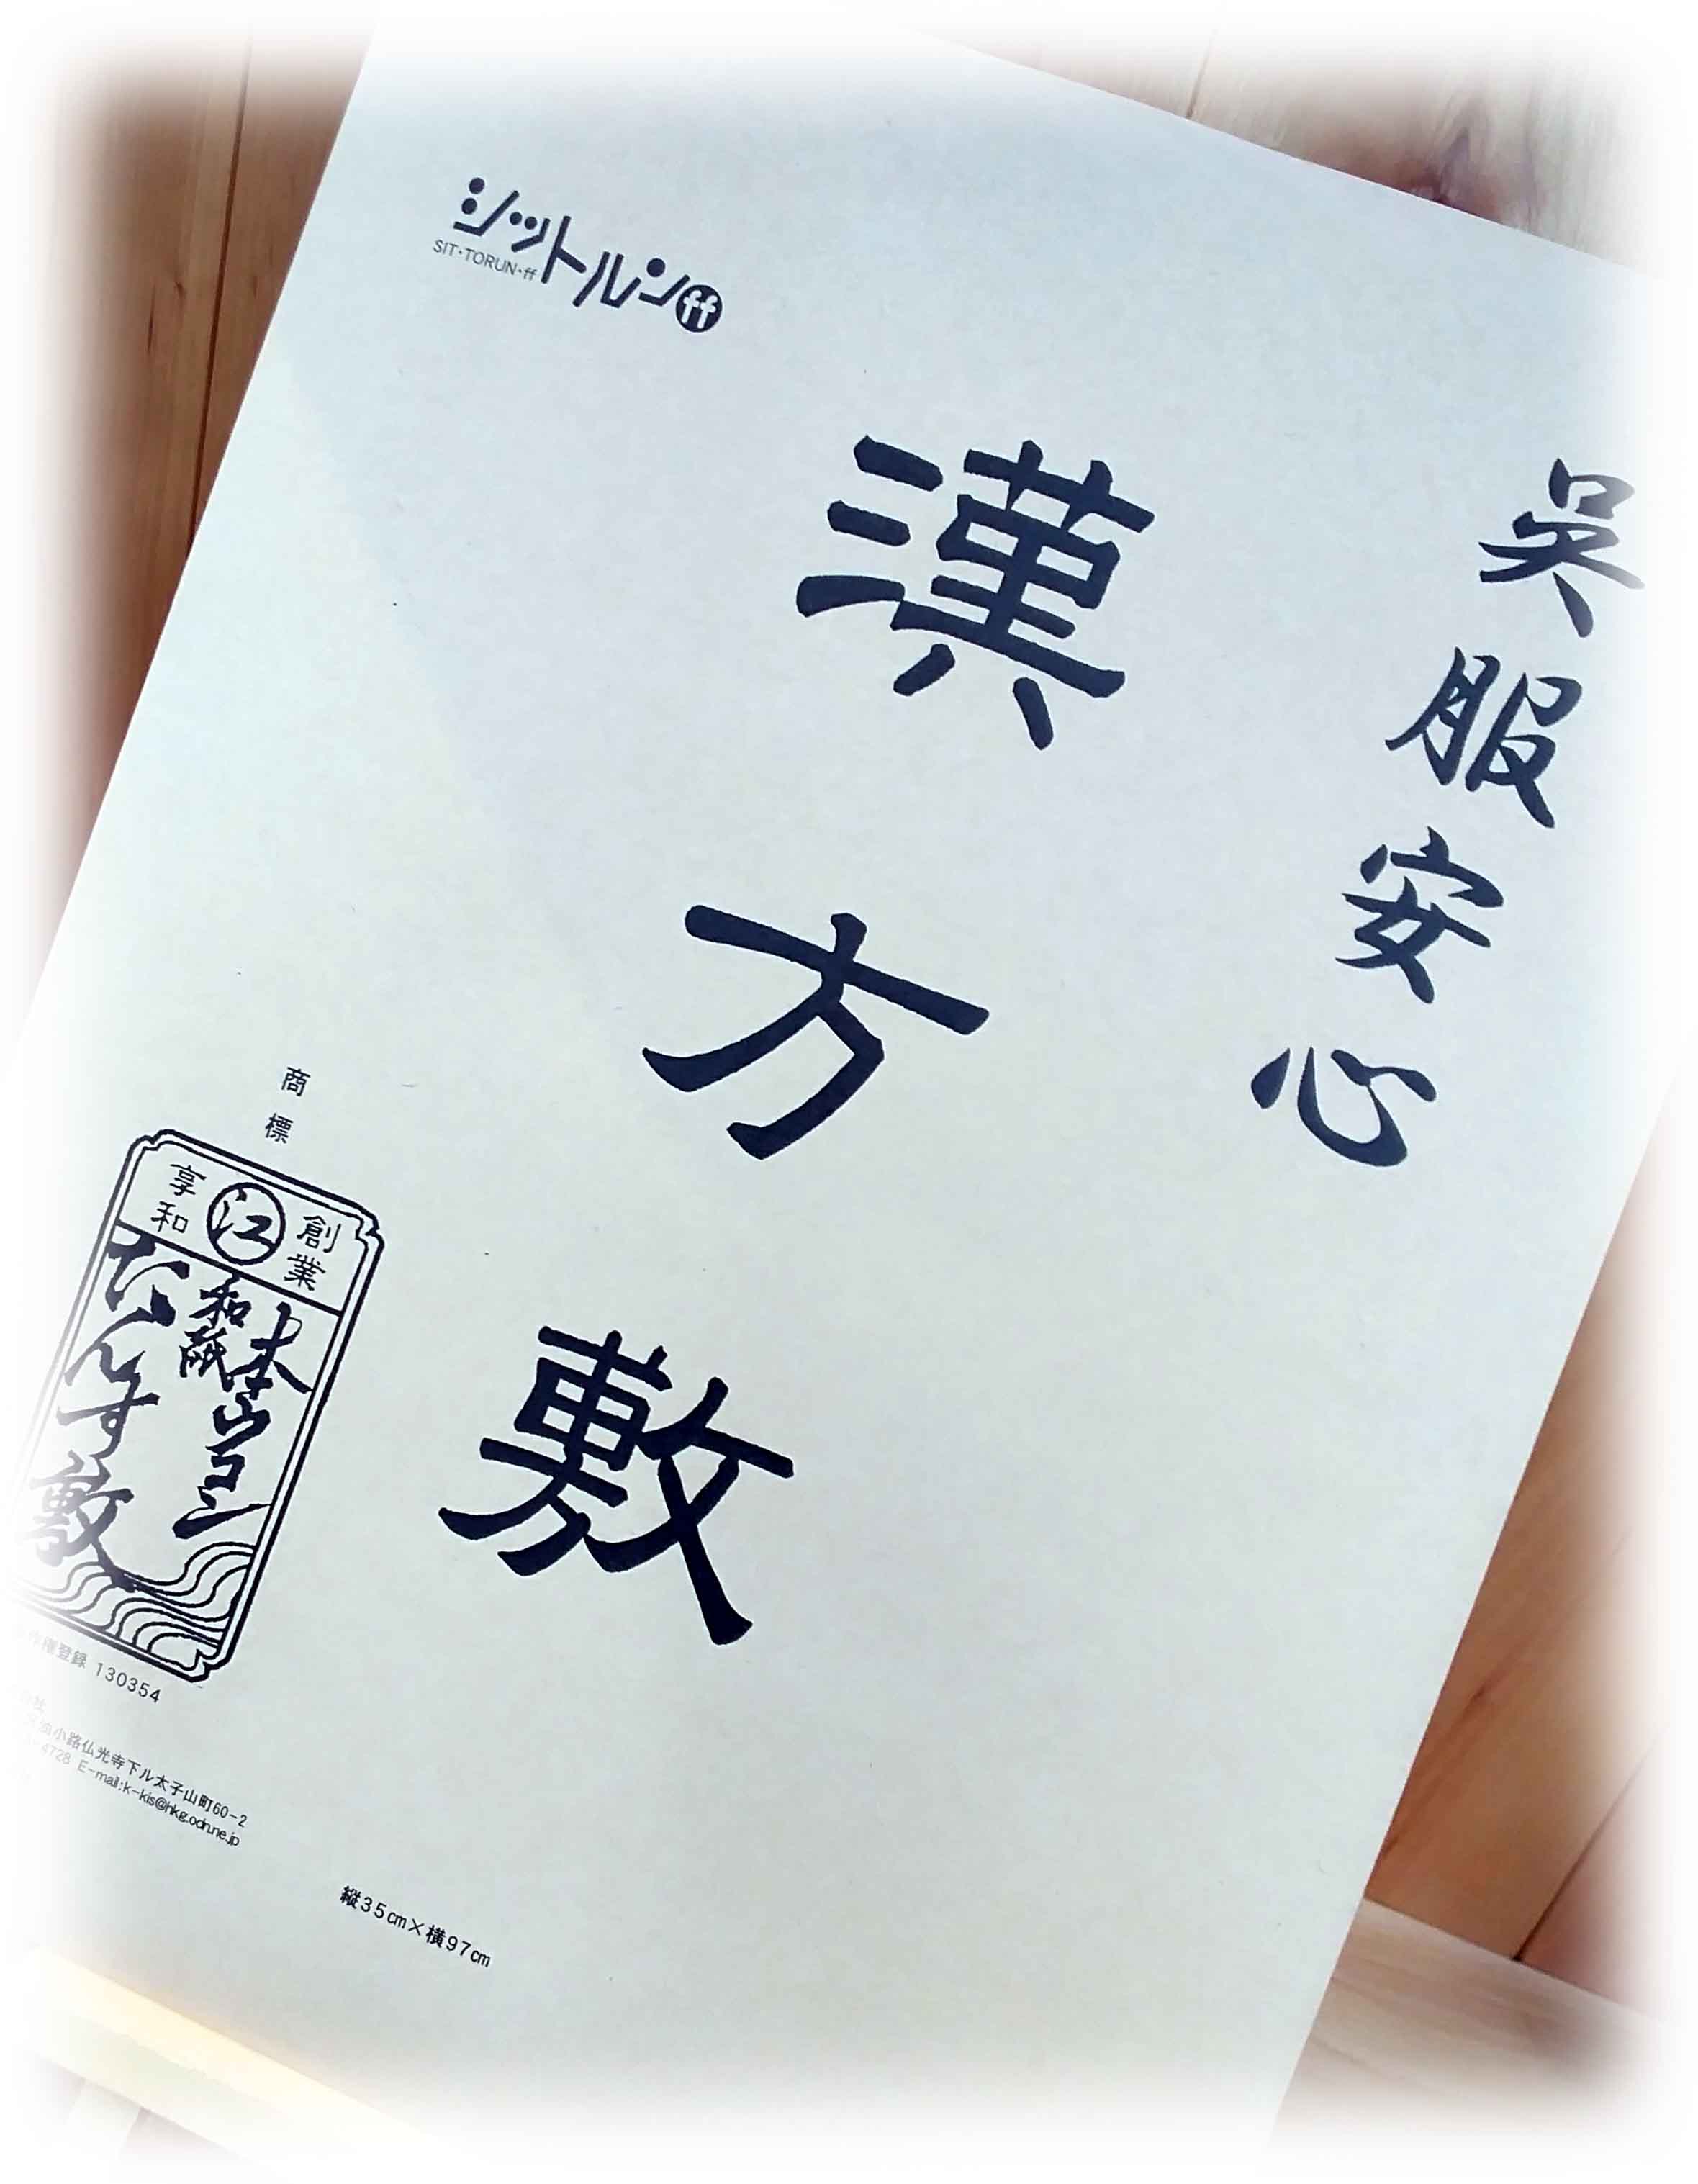 シットルンff
SIT・TORUN・ff
呉服安心
漢方敷
商標
創業
江
享和
本ウコン
和紙
たんす敷
作権登録 130354
油小路仏光寺下ル太子山町60-2
4728 E-mail:k-kis@hkg.odn.ne.jp
縦35cm×横97cm